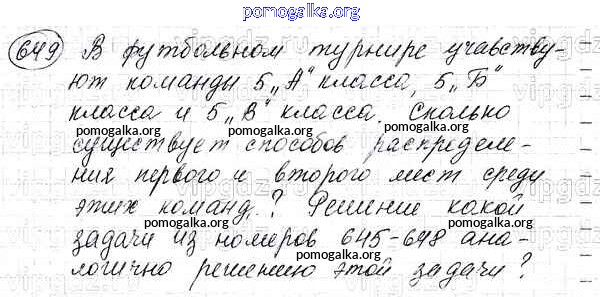 pomogalka.org
649 В футбольном турнире учавству-
ют команды 5 „А" класса, 5 „Б"
класса и 5 „В" класса. Сколько
pomogalka.org pomogalka.org
существует способов распределе-
ния первого и второго мест среди
pomogalka.org pomogalka.org
этих команд? Решение какой
задачи из номеров 645-648 ана-
логично решению этой задачи?
pomogalka.org